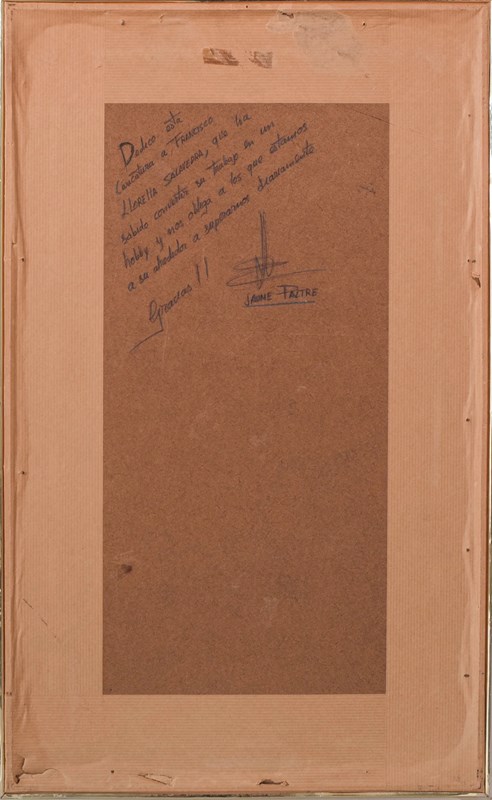 Dedico esta
caricatura a FRANCISCO
LLORELLA SALAVERRA, que ha
sabido convertir su trabajo en un
hobby y nos obliga a los que estamos
a su alrededor a superarnos diariamente
Gracias!!
JAUME